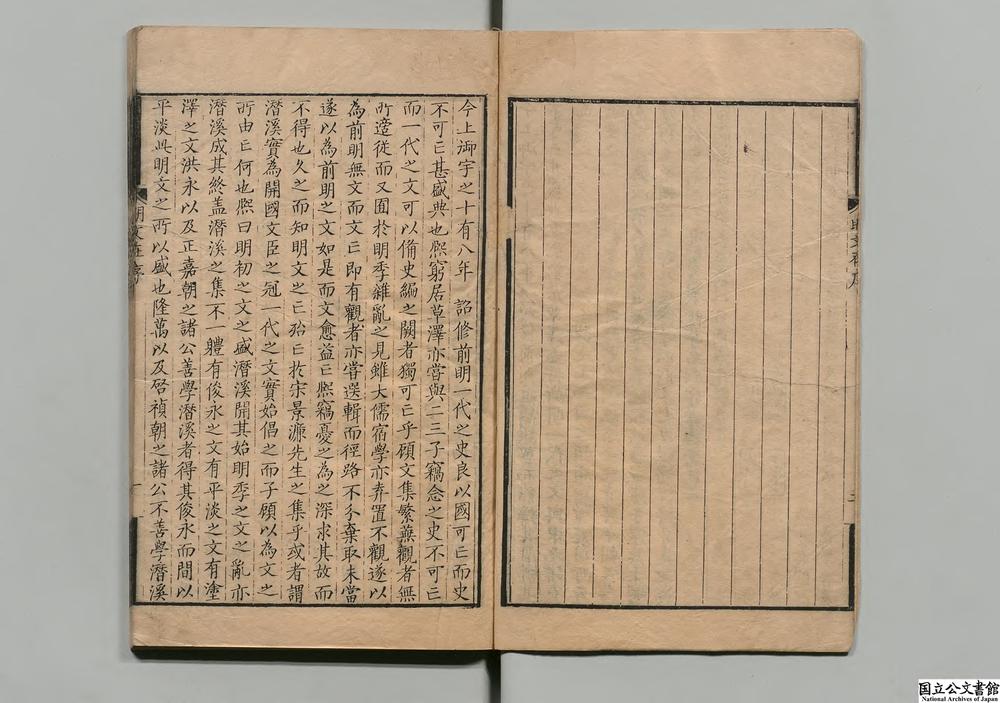 明文在序
二
今上御宇之十有八年　詔修前明一代之史良以國可亡而史
不可亡甚盛典也熈窮居草澤亦嘗與二三子竊念之史不可亡
而一代之文可以備史編之闕者獨可亡乎顧文集繁蕪觀者無
所適從而又囿於明季雜亂之見雖大儒宿學亦弃置不觀遂以
為前明無文而文亡即有觀者亦嘗選輯而徑路不分棄取未當
遂以為前明之文如是而文愈益亡熈竊憂之為之深求其故而
不得也久之而知明文之亡殆亡於宋景濂先生之集乎或者謂
潛溪實為開國文臣之冠一代之文實始倡之而子顧以為文之
所由亡何也熈曰明初之文之盛潛溪開其始明季之文之亂亦
潛溪成其終盖潛溪之集不一體有俊永之文有平淡之文有塗
澤之文洪永以及正嘉朝之諸公善學潛溪者得其俊永而間以
平淡此明文之所以盛也隆萬以及啓禎朝之諸公不善學潛溪
明文在序
一
国立公文書館
National Archives of Japan